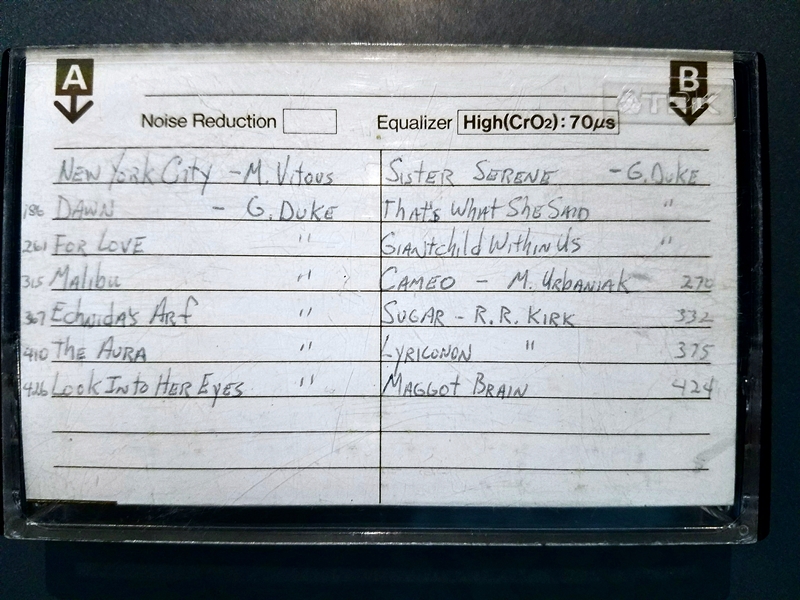 A
B
TDK
Noise Reduction
Equalizer High(CrO2): 70µs
New York City - M. Vitous
186 Dawn - G. Duke
261 For Love "
315 Malibu "
367 Echidna's Arf "
410 The Aura "
426 Look Into Her Eyes "
Sister Serene - G. Duke
That's What She Said "
Giantchild Within Us "
Cameo - M. Urbaniak 270
Sugar - R.R. Kirk 332
Lyriconon " 375
Maggot Brain 424